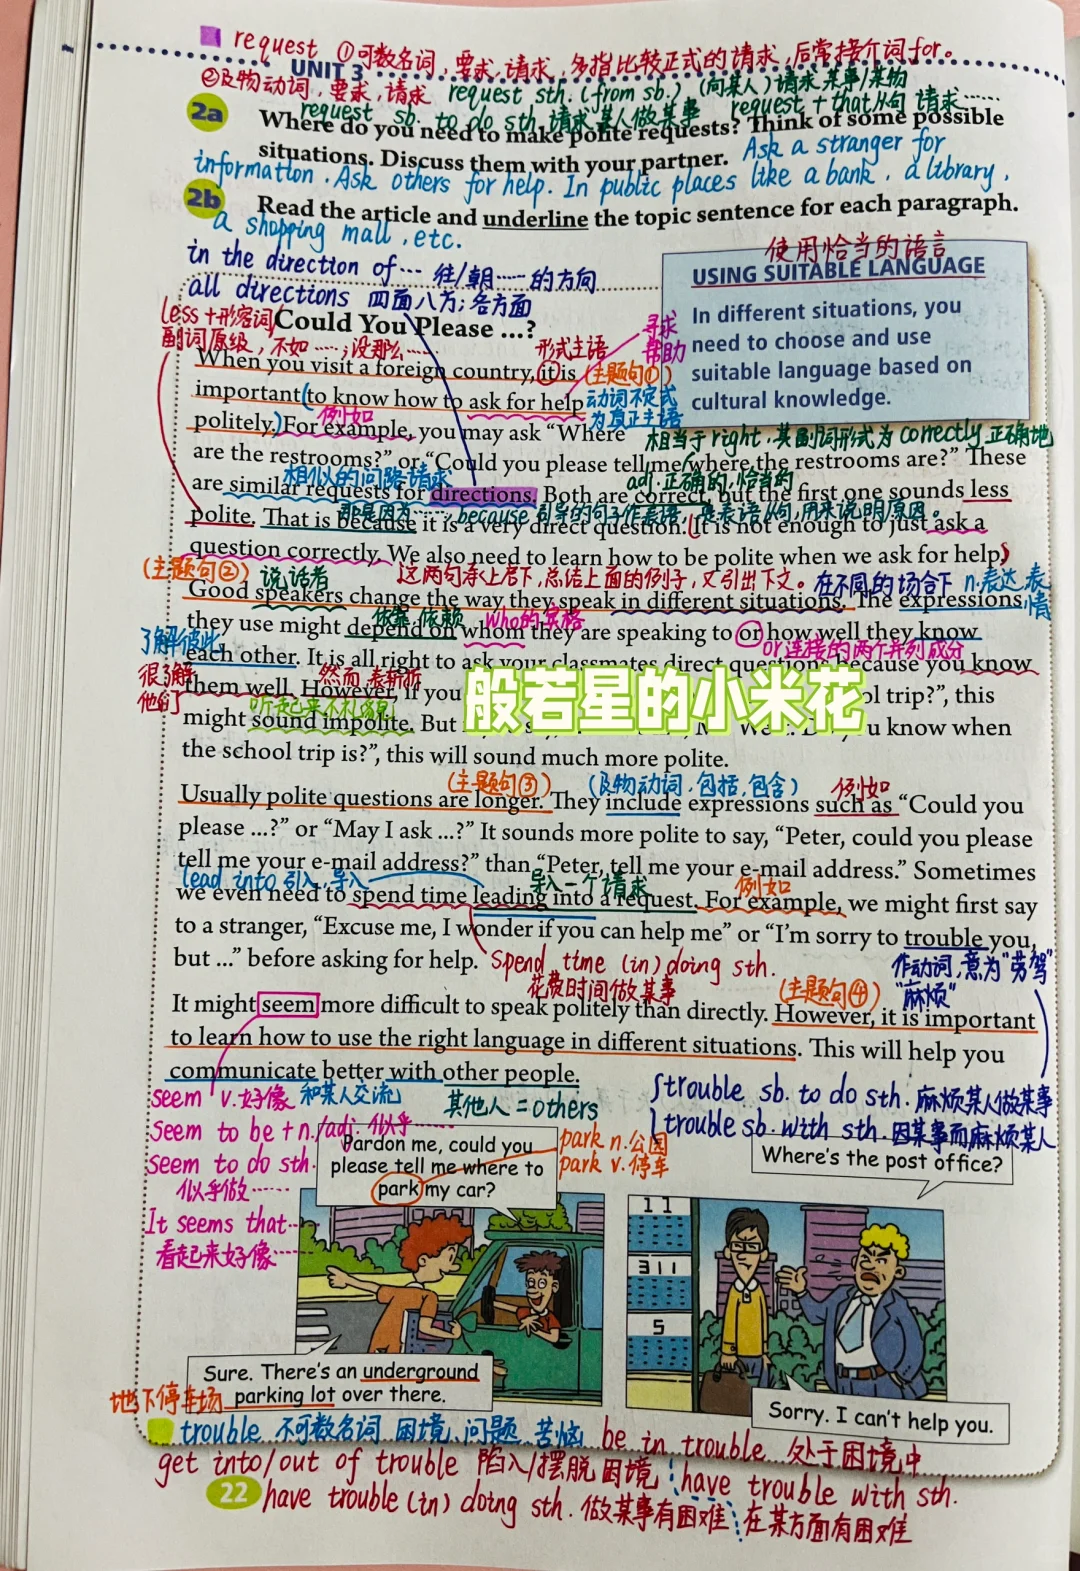 request ①可数名词,要求,请求,多指比较正式的请求,后常接介词for。
UNIT 3
②及物动词,要求,请求 request sth.(from sb.) (向某人)请求某事/某物
request sb. to do sth 请求某人做某事 request + that从句 请求……
2a Where do you need to make polite requests? Think of some possible
situations. Discuss them with your partner. Ask a stranger for
information. Ask others for help. In public places like a bank, a library,
2b Read the article and underline the topic sentence for each paragraph.
a shopping mall, etc.
in the direction of … 往/朝……的方向
all directions 四面八方;各方面
使用恰当的语言
USING SUITABLE LANGUAGE
In different situations, you
need to choose and use
suitable language based on
cultural knowledge.
less+形容词/
副词原级,不如……;没那么……
Could You Please ...?
形式主语
寻求
帮助
When you visit a foreign country, it is (主题句①)
important (to know how to ask for help 动词不定式
为真正主语
politely.) For example, you may ask “Where
例如
相当于right,其副词形式为correctly 正确地
are the restrooms?” or “Could you please tell me where the restrooms are?” These
相似的问路请求
adj.正确的,恰当的
are similar requests for directions. Both are correct, but the first one sounds less
那是因为……, because引导的句子作表语,是表语从句,用来说明原因。
polite. That is because it is a very direct question. (It is not enough to just ask a
question correctly. We also need to learn how to be polite when we ask for help.)
(主题句②) 说话者 这两句承上启下,总结上面的例子,又引出下文。 在不同的场合下 n.表达,表情
Good speakers change the way they speak in different situations. The expressions
依靠,依赖 who的宾格
they use might depend on whom they are speaking to or how well they know
了解彼此
or连接的两个并列成分
each other. It is all right to ask your classmates direct questions because you know
很了解
他们
然而,表转折
them well. However, if you
般若星的小米花
ol trip?”, this
听起来不礼貌
might sound impolite. But u know when
the school trip is?”, this will sound much more polite.
(主题句③) (及物动词,包括,包含) 例如
Usually polite questions are longer. They include expressions such as “Could you
please ...?” or “May I ask ...?” It sounds more polite to say, “Peter, could you please
tell me your e-mail address?” than “Peter, tell me your e-mail address.” Sometimes
lead into 引入,导入 导入一个请求 例如
we even need to spend time leading into a request. For example, we might first say
to a stranger, “Excuse me, I wonder if you can help me” or “I’m sorry to trouble you,
but ...” before asking for help. Spend time (in) doing sth.
花费时间做某事
作动词,意为“劳驾”
“麻烦”
(主题句④)
It might seem more difficult to speak politely than directly. However, it is important
to learn how to use the right language in different situations. This will help you
communicate better with other people.
seem v.好像 和某人交流 其他人=others
seem to be+n./adj. 似乎……
seem to do sth.
似乎做……
It seems that…
看起来好像……
trouble sb. to do sth. 麻烦某人做某事
trouble sb. with sth. 因某事而麻烦某人
Pardon me, could you
please tell me where to
park my car?
park n.公园
park v.停车
Where’s the post office?
11
311
5
Sure. There’s an underground
parking lot over there.
地下停车场
Sorry. I can’t help you.
trouble 不可数名词 困境、问题、苦恼 be in trouble 处于困境中
get into/out of trouble 陷入/摆脱困境 have trouble with sth.
22 have trouble (in) doing sth. 做某事有困难 在某方面有困难